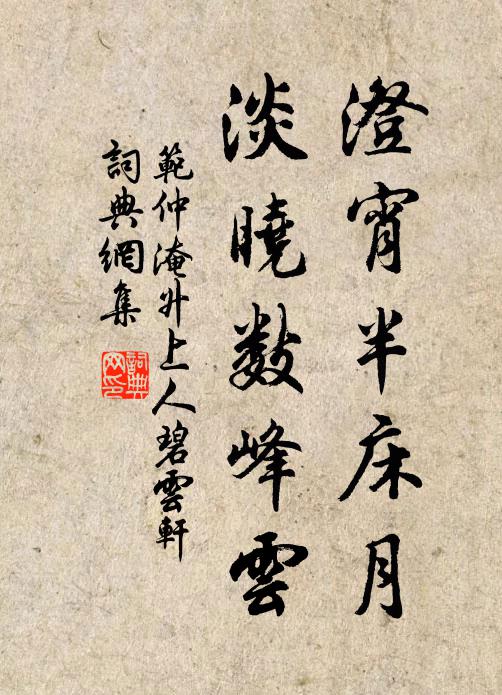 澄宵半床月
淡曉数峰雲
範仲淹升上人碧雲軒
詞典網集
詞典网印